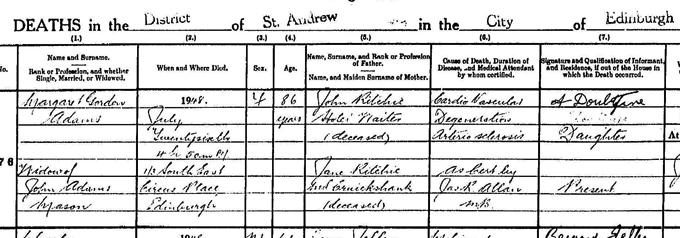 DEATHS in the District of St. Andrew in the City of Edinburgh
(1.) (2.) (3.) (4.) (5.) (6.) (7.)
No. Name and Surname. Rank or Profession, and whether Single, Married, or Widowed. When and Where Died. Sex. Age. Name, Surname, and Rank or Profession of Father. Name, and Maiden Surname of Mother. Cause of Death, Duration of Disease, and Medical Attendant by whom certified. Signature and Qualification of Informant, and Residence, if out of the House in which the Death occurred.
Margaret Gordon 1948. F 86 John Ritchie Cardio Vascular
Adams July years Hotel Waiter Degeneration
Twentysixth (deceased) Arterio sclerosis Daughter At
4h 5m
76 Widow of 1/2 South East Jane Ritchie as cert by
John Adams Circus Place Cruickshank Jas. R. Allan Present
Mason Edinburgh (deceased) M.B.